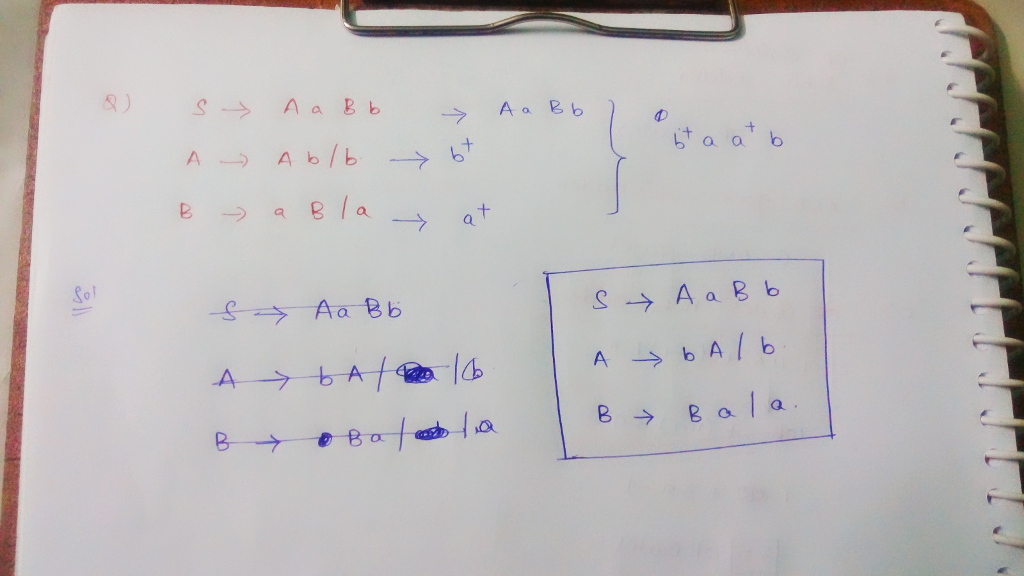 Q) S → A a B b → A a B b
A → A b / b → b⁺
B → a B / a → a⁺
b⁺ a a⁺ b
Sol
S → A a B b
A → b A / / b
B → B a / / a
S → A a B b
A → b A / b
B → B a / a.